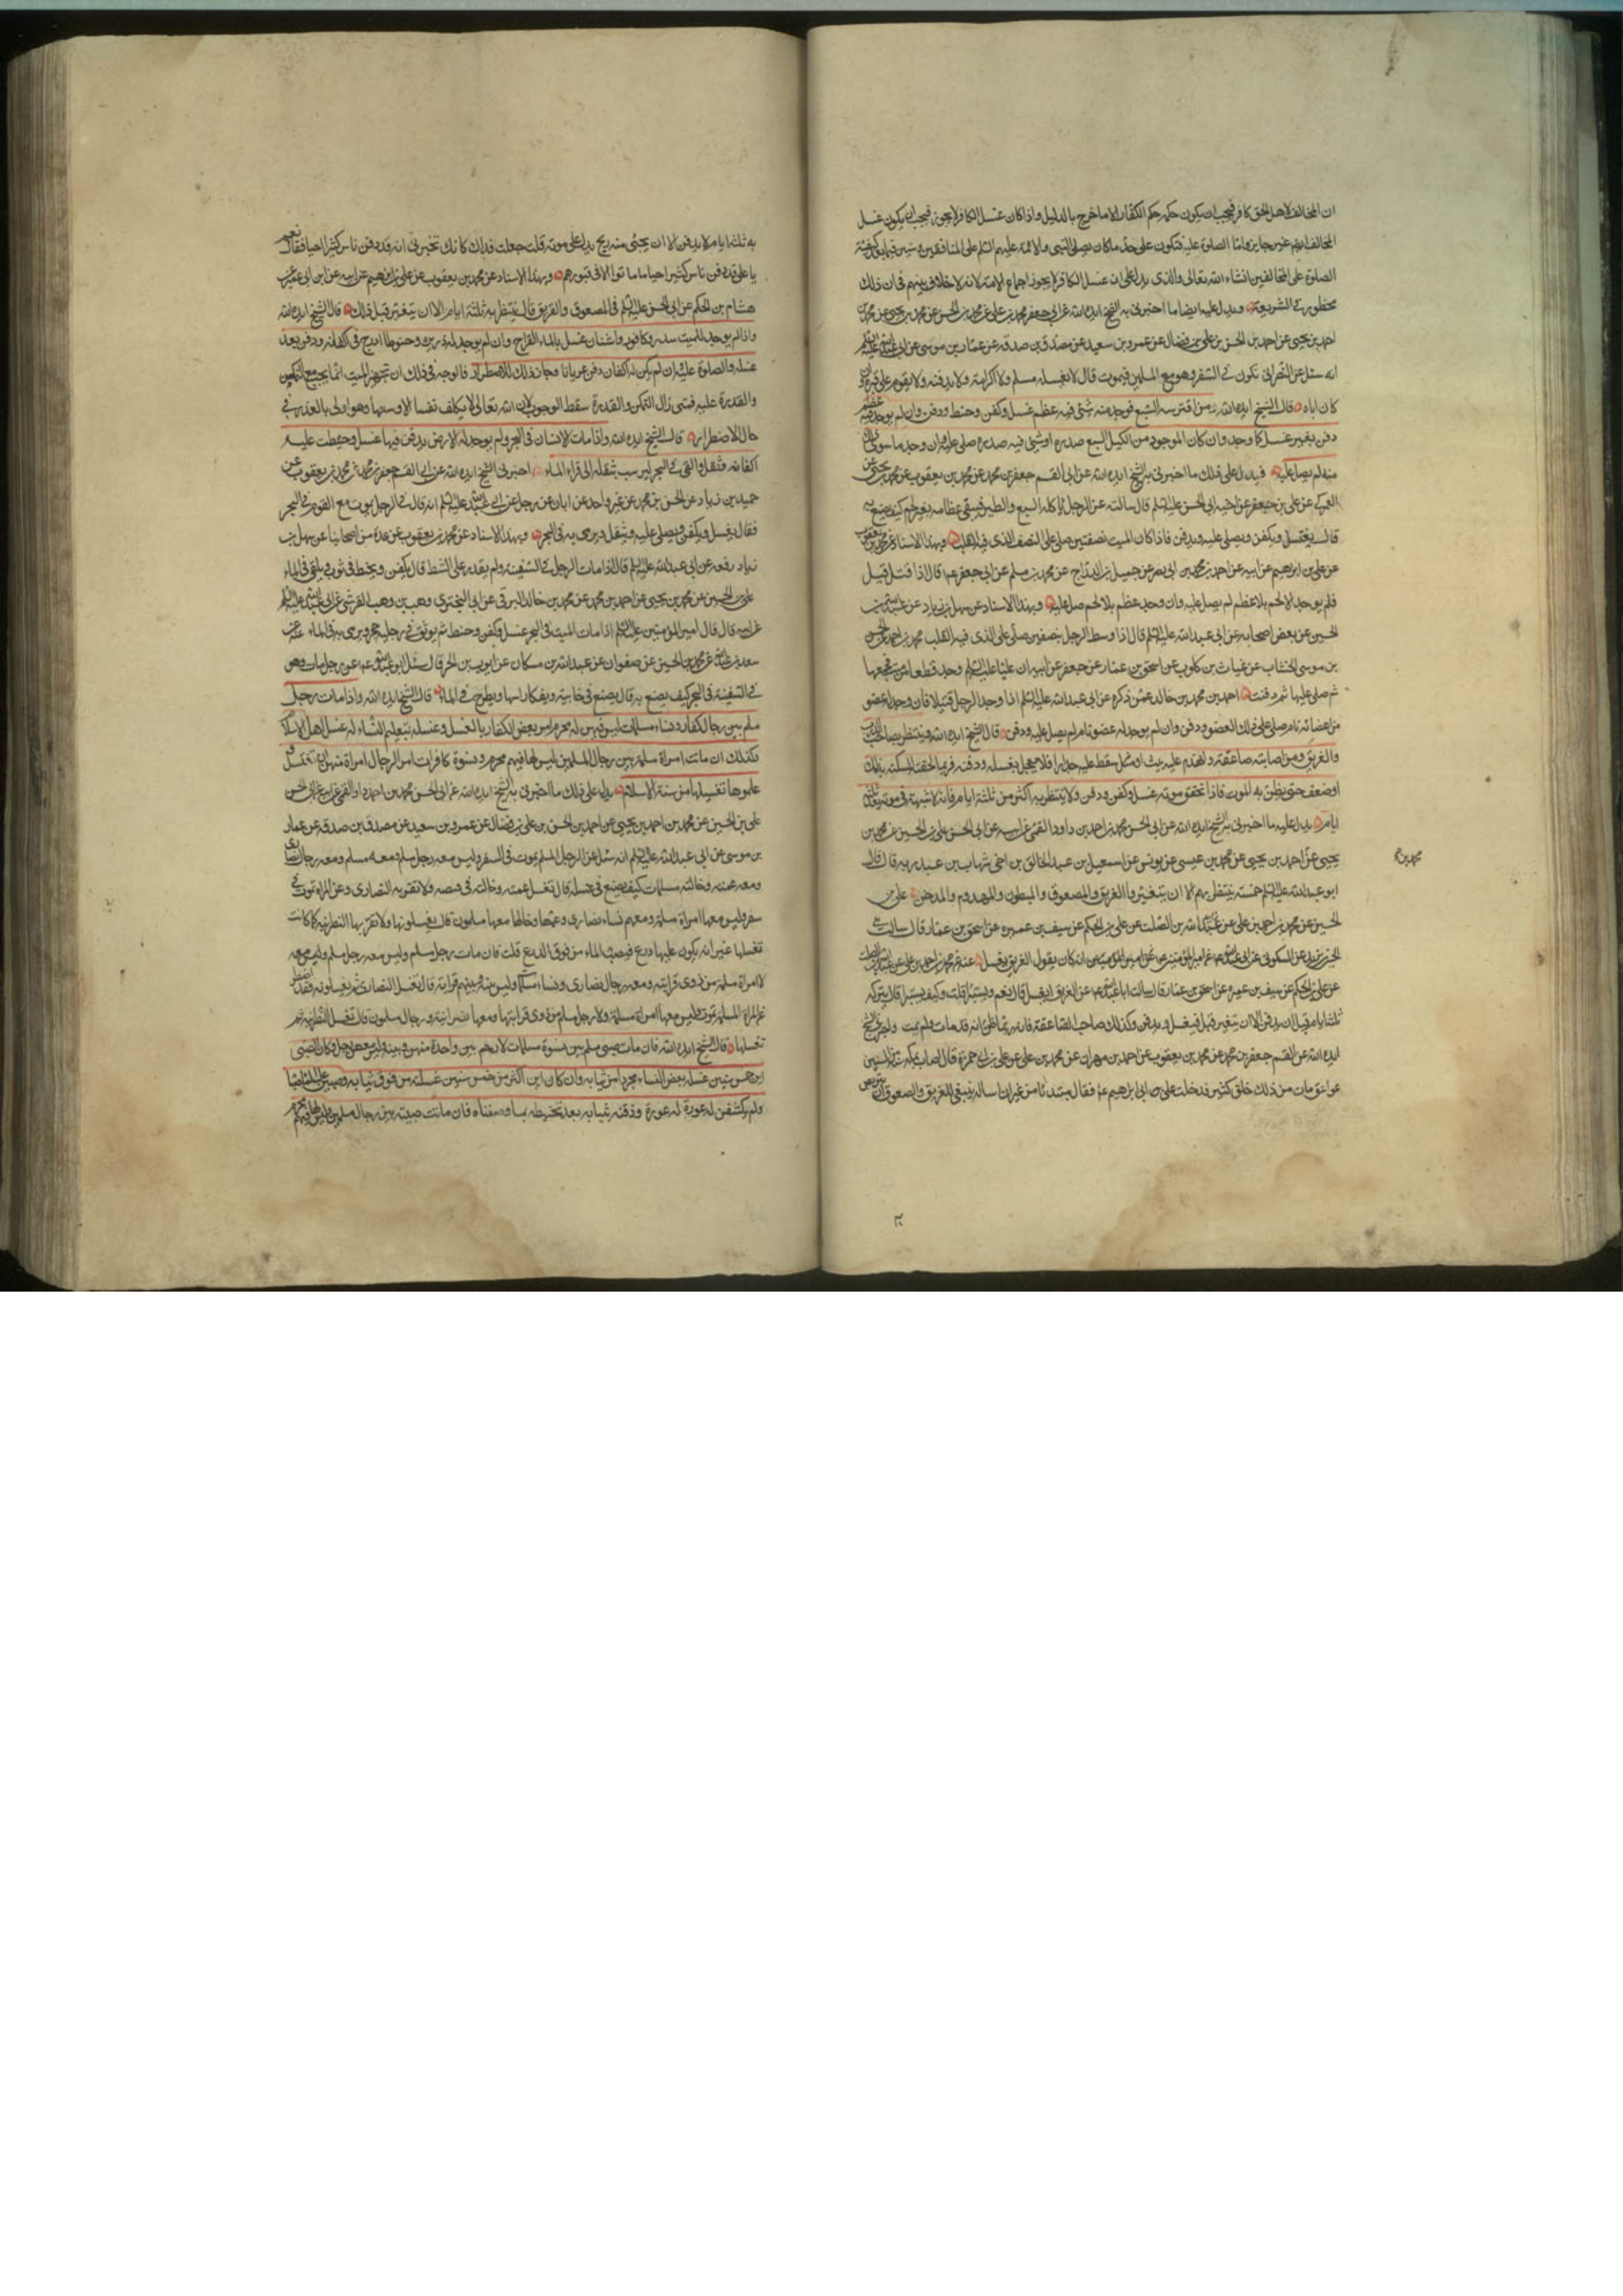 ان المخالف لاهل الحق كافر فيجب ان يكون حكمه حكم الكفار الا ما خرج بالدليل واذا كان غسل الكافر لا يجوز فيجب ان يكون غسل
المخالف ايضا غير جايز واما الصلوة عليه فتكون على حد ما كان يصلي النبي والائمة عليهم السلم على المنافقين وسنبين فيما بعد كيفية
الصلوة على المخالفين انشاء الله تعالى والذي يدل على ان غسل الكافر لا يجوز اجماع الامة لانه لا خلاف بينهم في ان ذلك
محظور في الشريعة ويدل عليه ايضا ما اخبرني به الشيخ ايده الله عن ابي جعفر محمد بن علي عن محمد بن الحسن عن محمد بن يحيى عن محمد بن
احمد بن يحيى عن احمد بن الحسن بن علي بن فضال عن عمرو بن سعيد عن مصدق بن صدقه عن عمار بن موسى عن ابي عبد الله عليه السلم
انه سئل عن النصراني يكون في السفر وهو مع المسلمين فيموت قال لا يغسله مسلم ولا كرامة ولا يدفنه ولا يقوم على قبره وان
كان اباه قال الشيخ ايده الله ومن افترسه السبع فوجد منه شئ فيه عظم غسل وكفن وحنط ودفن وان لم يوجد فيه عظم
دفن بغير غسل كما وجد وان كان الموجود من اكيل السبع صدره او شئ فيه صدره صلى عليه وان وجد ما سوى ذلك
منه لم يصل عليه فيدل على ذلك ما اخبرني به الشيخ ايده الله عن ابي القسم جعفر بن محمد عن محمد بن يعقوب عن محمد بن يحيى عن
العمركي عن علي بن جعفر عن اخيه ابي الحسن عليه السلم قال سالته عن الرجل ياكله السبع والطير فيبقى عظامه بغير لحم كيف يصنع به
قال يغسل ويكفن ويصلى عليه ويدفن فاذا كان الميت نصفين صلي على النصف الذي فيه القلب وبهذا الاسناد عن محمد بن يعقوب
عن علي بن ابراهيم عن ابيه عن احمد بن محمد بن ابي نصر عن جميل بن الدراج عن محمد بن مسلم عن ابي جعفر عم قال اذا قتل قتيل
فلم يوجد الا لحم بلا عظم لم يصل عليه وان وجد عظم بلا لحم صل عليه وبهذا الاسناد عن سهل بن زياد عن عبد الله بن
الحسين عن بعض اصحابه عن ابي عبد الله عليه السلم قال اذا وسط الرجل بنصفين صلي على الذي فيه القلب محمد بن احمد عن الحسن
بن موسى الخشاب عن غياث بن كلوب عن اسحق بن عمار عن جعفر عن ابيه ان عليا عليه السلم وجد قطعا من ميت فجمعها
ثم صلى عليها ثم دفنت احمد بن محمد بن خالد عمن ذكره عن ابي عبد الله عليه السلم اذا وجد الرجل قتيلا فان وجد له عضو
من اعضائه تام صلي على ذلك العضو ودفن وان لم يوجد له عضو تام لم يصل عليه ودفن قال الشيخ ايده الله وينتظر بصاحب الذرب
والغريق ومن اصابته صاعقة او انهدم عليه بيت او سقط عليه جدار فلا يعجل بغسله ودفنه فربما لحقته السكتة بذلك
او ضعف حتى يظن به الموت فاذا تحقق موته غسل وكفن ودفن ولا ينتظر به اكثر من ثلثة ايام فانه لا شبهة في موته بعد ثلثة
ايام يدل عليه ما اخبرني به الشيخ ايده الله عن ابي الحسن محمد بن احمد بن داود القمي عن ابيه عن ابي الحسن علي بن الحسين عن محمد بن
يحيى عن احمد بن يحيى عن محمد بن عيسى عن يونس عن اسمعيل بن عبد الخالق بن اخي شهاب بن عبد ربه قال قال
محمد بن
ابو عبد الله عليه السلم خمسة ينتظر بهم الا ان يتغيروا الغريق والمصعوق والمبطون والمهدوم والمدخن علي بن
الحسين عن محمد بن احمد بن علي عن عبد الله بن الصلت عن علي بن الحكم عن سيف بن عميره عن اسحق بن عمار قال سالت
عن السكوني عن ابي عبد الله عن امير المؤمنين انه كان يقول الغريق يغسل عنه عن محمد بن احمد بن علي عن عبد الله بن الصلت
عن علي بن الحكم عن سيف بن عميره عن اسحق بن عمار قال سالت ابا عبد الله عم عن الغريق ايغسل قال نعم ويستبرا قلت وكيف يستبرا قال يترك
ثلثة ايام قبل ان يدفن الا ان يتغير قبل فيغسل ويدفن وكذلك صاحب الصاعقة فانه ربما ظن انه قد مات ولم يمت واخبرني الشيخ
ايده الله عن القسم جعفر بن محمد عن محمد بن يعقوب عن احمد بن مهران عن محمد بن علي عن علي بن ابي حمزة قال اصاب بمكة سنة من السنين
صواعق مات من ذلك خلق كثير فدخلت على ابي ابرهيم عم فقال مبتدئا من غير ان ساله ينبغي للغريق والمصعوق ان يتربص
به ثلثة ايام لا يدفن الا ان يجئ منه ريح يدل على موته قلت جعلت فداك كانك تخبرني انه قد دفن ناس كثير احيا فقال نعم
يا علي قد دفن ناس كثير احيا ما ماتوا الا في قبورهم وبهذا الاسناد عن محمد بن يعقوب عن علي بن ابرهيم عن ابيه عن ابن ابي عمير عن
هشام بن الحكم عن ابي الحسن عليه السلم في المصعوق والغريق قال ينتظر به ثلثة ايام الا ان يتغير قبل ذلك قال الشيخ ايده الله
واذا لم يوجد للميت سدر وكافور واشنان غسل بالماء القراح وان لم يوجد له ذريرة وحنوط ادرج في اكفانه ودفن بعد
غسله والصلوة عليه وان لم يكن له اكفان دفن عريانا وجاز ذلك للاضطرار فالوجه في ذلك ان تجهيز الميت انما يجب مع التمكن
والقدرة عليه فمتى زال التمكن والقدرة سقط الوجوب لان الله تعالى لا يكلف نفسا الا وسعها وهو اولى بالعذر في
حال الاضطرار قال الشيخ ايده الله واذا مات الانسان في البحر ولم يوجد له الارض يدفن فيها غسل وحنطت عليه
اكفانه وثقل والقي في البحر ليرسب بثقله الى قرار الماء اخبرني الشيخ ايده الله عن ابي القسم جعفر بن محمد عن محمد بن يعقوب عن
حميد بن زياد عن الحسن بن محمد عن غير واحد عن ابان عن رجل عن ابي عبد الله عليه السلم انه قال في الرجل يموت مع القوم في البحر
فقال يغسل ويكفن ويصلى عليه ويثقل ويرمى به في البحر وبهذا الاسناد عن محمد بن يعقوب عن عدة من اصحابنا عن سهل بن
زياد رفعه عن ابي عبد الله عليه السلم قال اذا مات الرجل في السفينة ولم يقدر على الشط قال يكفن ويحنط في ثوب ويلقى في الماء
علي بن الحسين عن محمد بن يحيى عن احمد بن محمد عن محمد بن خالد البرقي عن ابي البختري وهب بن وهب القرشي عن ابي عبد الله عليه السلم
عن ابيه قال قال امير المؤمنين عليه السلم اذا مات الميت في البحر غسل وكفن وحنط ثم يوثق في رجليه حجر ويرمى به في الماء عنه عن
سعد بن عبد الله عن محمد بن الحسين عن صفوان عن عبد الله بن مسكان عن ايوب بن الحر قال سئل ابو عبد الله عم عن رجل مات وهو
في السفينة في البحر كيف يصنع به قال يصنع في خابية ويوكا راسها ويطرح في الماء قال الشيخ ايده الله واذا مات رجل
مسلم بين رجال كفار ونساء مسلمات ليس فيهن له محرم امر بعض الكفار بالغسل وغسله بتعليم النساء له غسل اهل الاسلام
وكذلك ان ماتت امراة مسلمة بين رجال المسلمين ليس لها فيهم محرم ونسوة كافرات امر الرجال امراة منهن ان تغتسل
علموها تغسيلها من سنة الاسلام يدل على ذلك ما اخبرني به الشيخ ايده الله عن ابي الحسن محمد بن احمد داود القمي عن ابيه عن ابي الحسن
علي بن الحسين عن محمد بن احمد بن يحيى عن احمد بن الحسن بن علي بن فضال عن عمرو بن سعيد عن مصدق بن صدقه عن عمار
بن موسى عن ابي عبد الله عليه السلم انه سئل عن الرجل المسلم يموت في السفر وليس معه رجل مسلم ومعه رجال نصارى
ومعه عمته وخالته مسلمات كيف يصنع في غسله قال تغسله عمته وخالته في قميصه ولا تقربه النصارى وعن المراة تموت في
سفر وليس معها امراة مسلمة ومعهم نساء نصارى وعمها وخالها معها مسلمون قال يغسلونها ولا تقربها النصرانية كما كانت
تغسلها غير انه يكون عليها درع فيصب الماء من فوق الدرع قلت فان مات رجل مسلم وليس معه رجل مسلم وليس معه
لا امراة مسلمة من ذوي قرابته ومعه رجال نصارى ونساء مسلمات ليس بينه وبينهم قرابة قال يغتسل النصارى ثم يغسلونه فقد اضطر
عن المراة المسلمة تموت وليس معها امراة مسلمة ولا رجل مسلم من ذوي قرابتها ومعها نصرانية ورجال مسلمون قال تغتسل النصرانية ثم
تغسلها قال الشيخ ايده الله فان مات صبي مسلم بين نسوة مسلمات لا رحم بين واحدة منهن وبينه وليس معهن رجل وكان الصبي
ابن خمس سنين غسله بعض النساء مجردا من ثيابه وان كان ابن اكثر من خمس سنين غسلنه من فوق ثيابه وصببن عليه الماء صبا
ولم يكشفن له عورة ودفنه بثيابه بعد تحنيطه بما وصفناه فان ماتت صبية بين رجال مسلمين ليس لها فيهم محرم